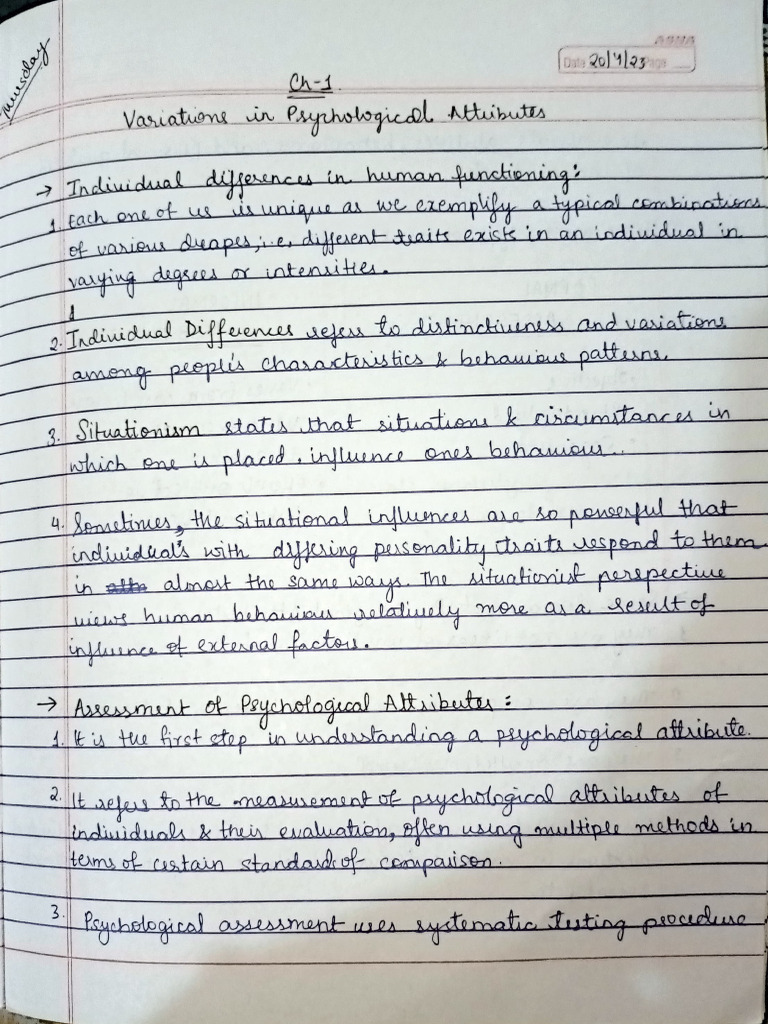 Thursday
ASNA
Date 20/4/23 Page
Ch-1
Variations in Psychological Attributes
→ Individual differences in human functioning:
1. Each one of us is unique as we exemplify a typical combinations
of various dreapes, i.e, different traits exists in an individual in
varying degrees or intensities.
2. Individual Differences refers to distinctiveness and variations
among people's characteristics & behaviour patterns.
3. Situationism states that situations & circumstances in
which one is placed, influence ones behaviour..
4. Sometimes, the situational influences are so powerful that
individual's with differing personality traits respond to them
in almost the same ways. The situationist perspective
views human behaviour relatively more as a result of
influence of external factors.
→ Assessment of Psychological Attributes:
1. It is the first step in understanding a psychological attribute.
2. It refers to the measurement of psychological attributes of
individuals & their evaluation, often using multiple methods in
terms of certain standard of comparison.
3. Psychological assessment uses systematic testing procedure